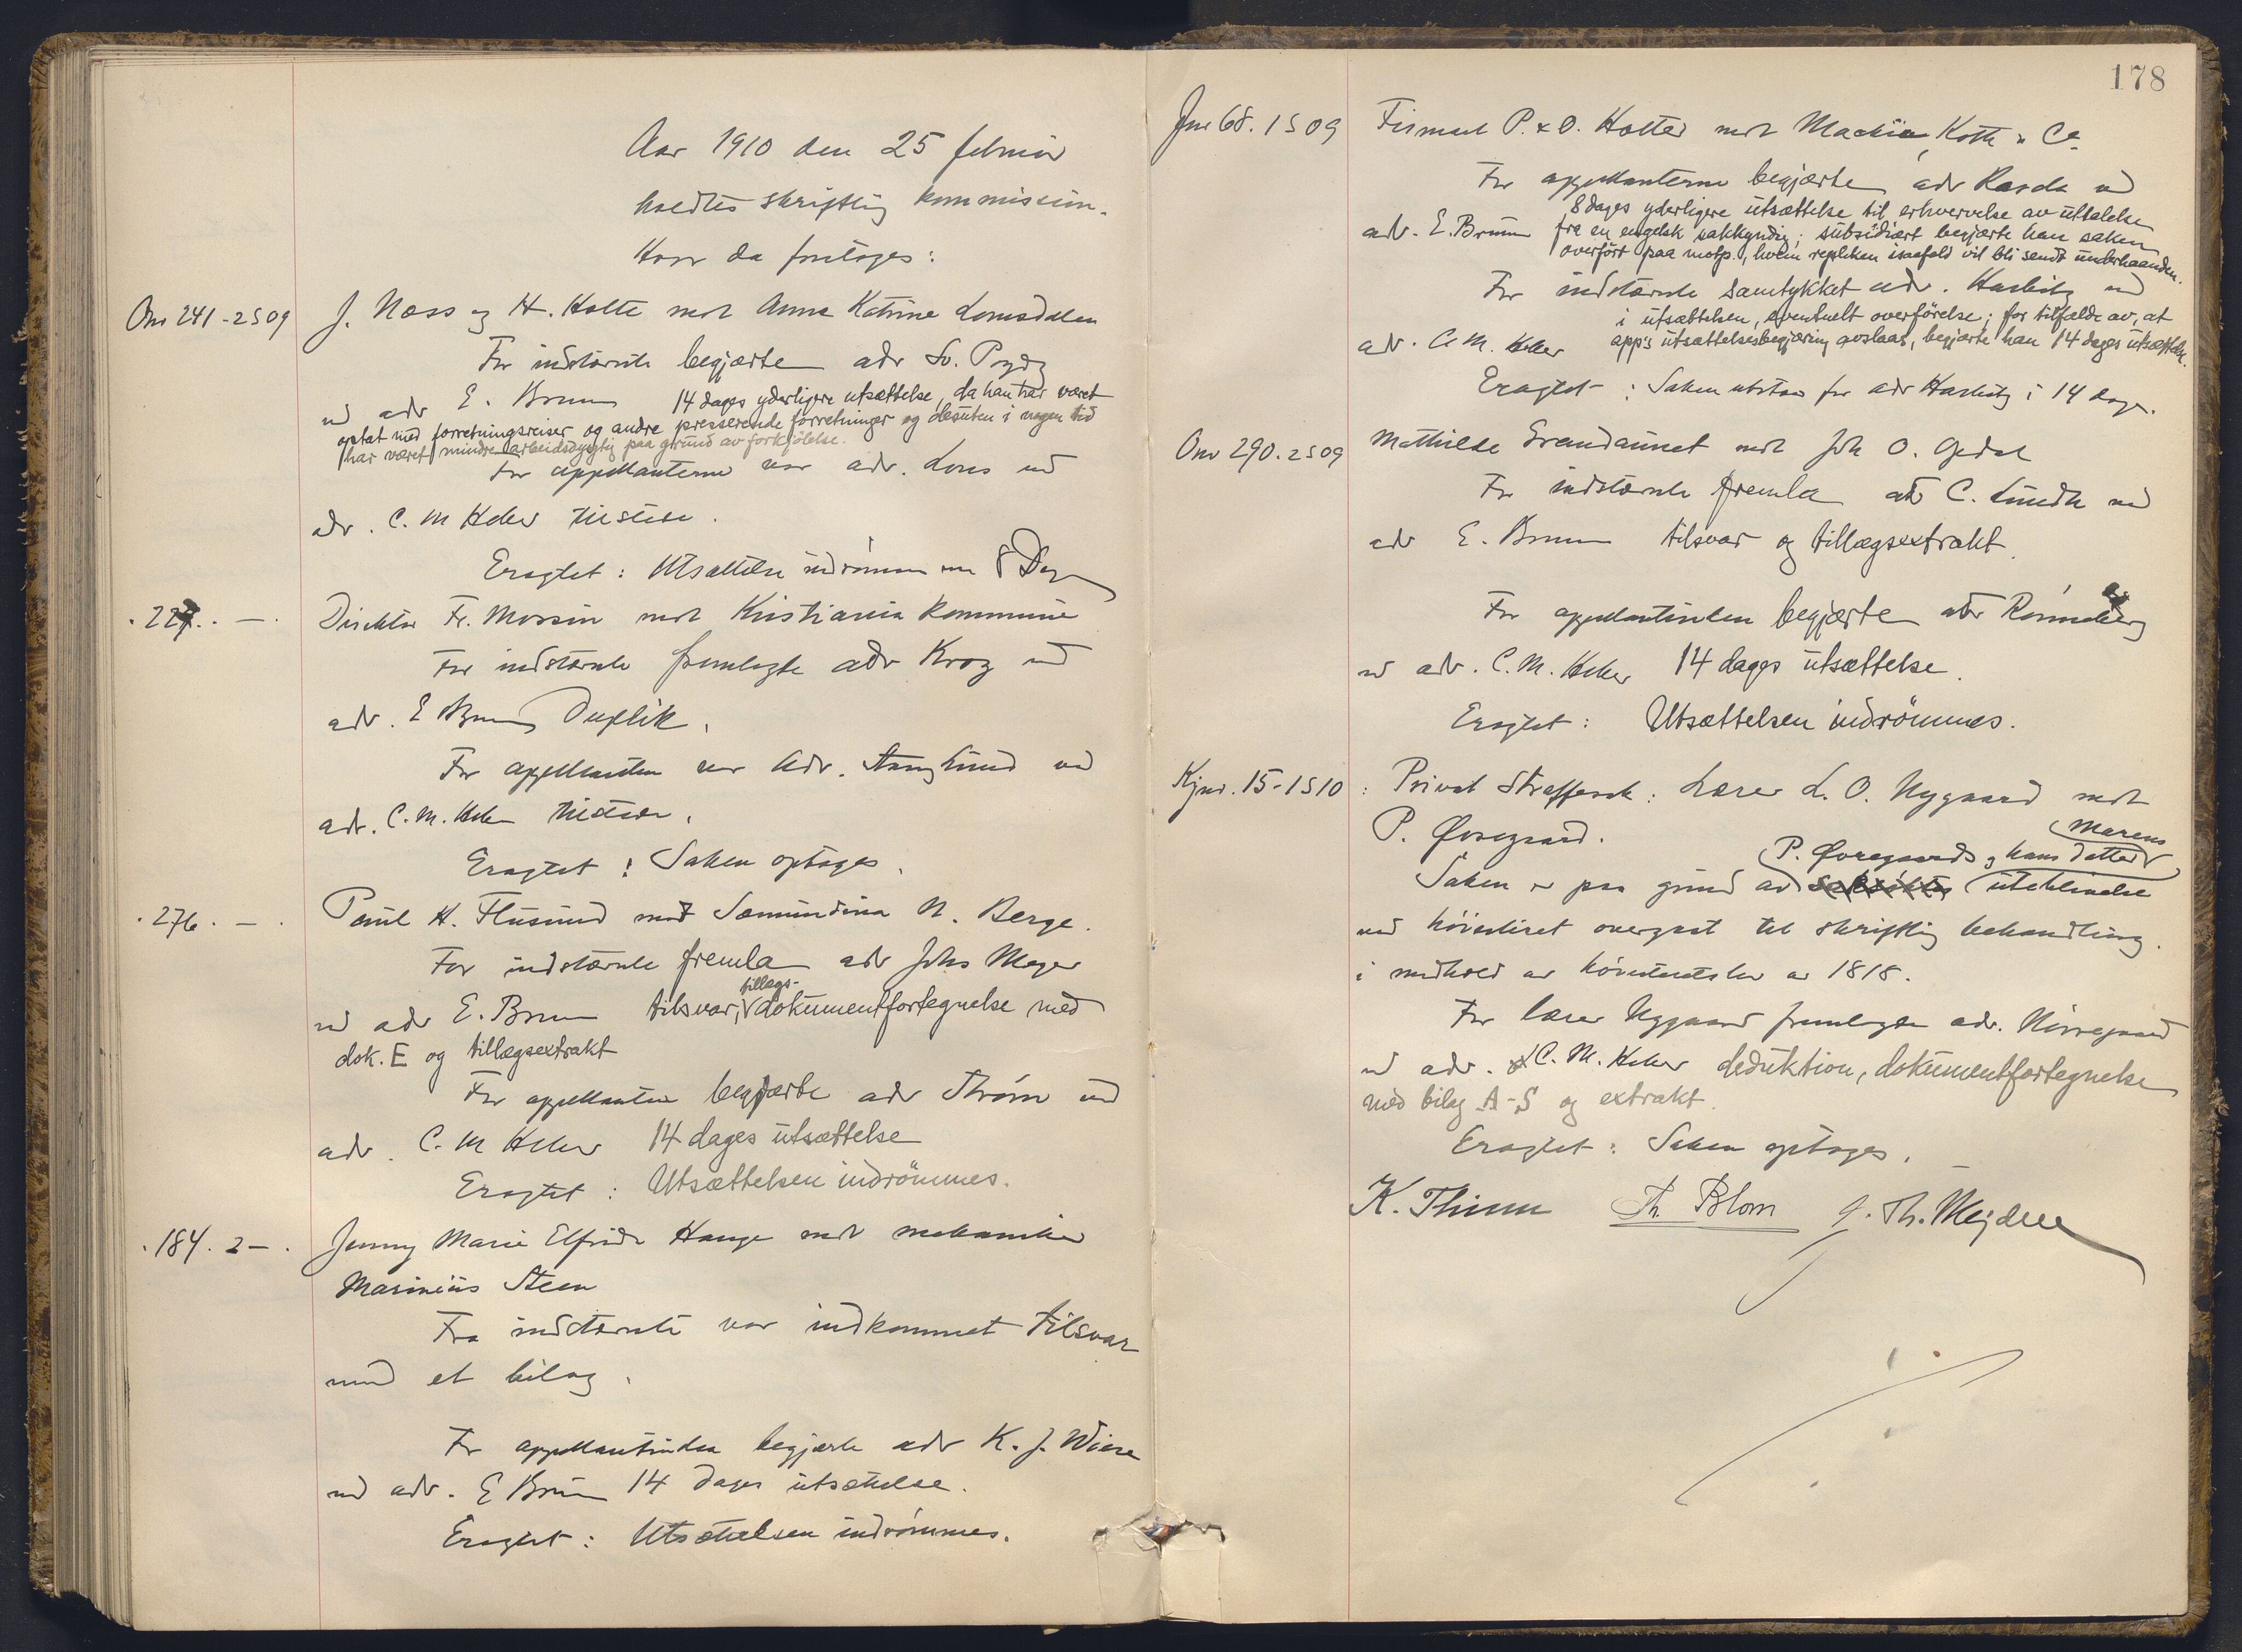 Aar 1910 den 25 februar
holdtes skriftlig kommission.
Hvor da foretoges:
Onr 241-2 S 09
J. Næss og H. Holte mot Anna Katrine Lomsdalen
For indstævnte begjærte adv Sv.
ved adv E. Bruun 14 dages yderligere utsættelse, da han har været
optat med forretningsreiser og andre presserende forretninger og desuten i nogen tid
har været mindre arbeidsdygtig paa grund av forkjölelse.
For appellanterne var adv. Lous ved
adv. C. M Heller tilstede.
Eragtet: Utsættelse indrømmes om 8 Dage
. 227. . — .
Direktør Fr. Mossin mot Kristiania kommune
For indstævnte fremlagte adv Krog ved
adv. E Bruun Duplik.
For appellanten var Adv. Stang Lund ved
adv. C. M. Heller tilstede.
Eragtet: Saken optages.
. 276. — .
Poul H. Flusund mot Sæmundina N. Berge.
For indstævnte fremla adv Johs Meyer
ved adv E. Bruun tilsvar, tillægs- dokumentfortegnelse med
dok. E og tillægsextrakt
For appellanten begjærte adv Strøm ved
adv. C. M Heller 14 dages utsættelse
Eragtet: Utsættelsen indrömmes.
. 184. 2 — .
Jenny Marie Elfrida Hauge mot mekaniker
Marinius Steen
Fra indstævnte var indkommet tilsvar
med et bilag.
For appellantinden begjærte adv K. J. Wiese
ved adv. E Bruun 14 dages utsættelse.
Eragtet: Utsættelsen indrømmes.
178
Jnr 68. 1 S 09
Firmaet P. & O. Holter mot Mackie, Koth & Co.
For appellanterne begjærte adv ved
adv. E. Bruun 8 dages yderligere utsættelse til erhvervelse av uttalelse
fra en engelsk sakkyndig; subsidiært begjærte han saken
overført paa motp., hvem repliken isaafald vil bli sendt underhaanden.
For indstævnte samtykket adv. Harbitz ved
adv. C. M. Heller i utsættelsen, eventuelt overförelse; for tilfælde av, at
app's utsættelsesbegjæring avslaaes, begjærte han 14 dages utsættelse.
Eragtet: Saken utstaar for adv Harbitz i 14 dage.
Onr 290. 2 S 09
Mathilde Grandaunet mot Joh O. Opdal
For indstævnte fremla adv C. Lundh ved
adv E. Bruun tilsvar og tillægsextrakt.
For appellantinden begjærte adv Rönneberg
ved adv. C. M. Heller 14 dages utsættelse.
Eragtet: Utsættelsen indrömmes.
Kjnr. 15-1 S 10
: Privat Straffesak: Lærer L. O. Nygaard mot
P. Øvregaard.
Saken er paa grund av P. Øvregaards og hans datter Marens uteblivelse
ved höiesteret overgaat til skriftlig behandling.
i medhold av høiesteretslov av 1818.
For lærer Nygaard fremlagde adv. Nörregaard
ved adv. C. M. Heller deduktion, dokumentfortegnelse
med bilag A-S og extrakt.
Eragtet: Saken optages.
K. Thinn Th. Blom J. Th. Mejdell